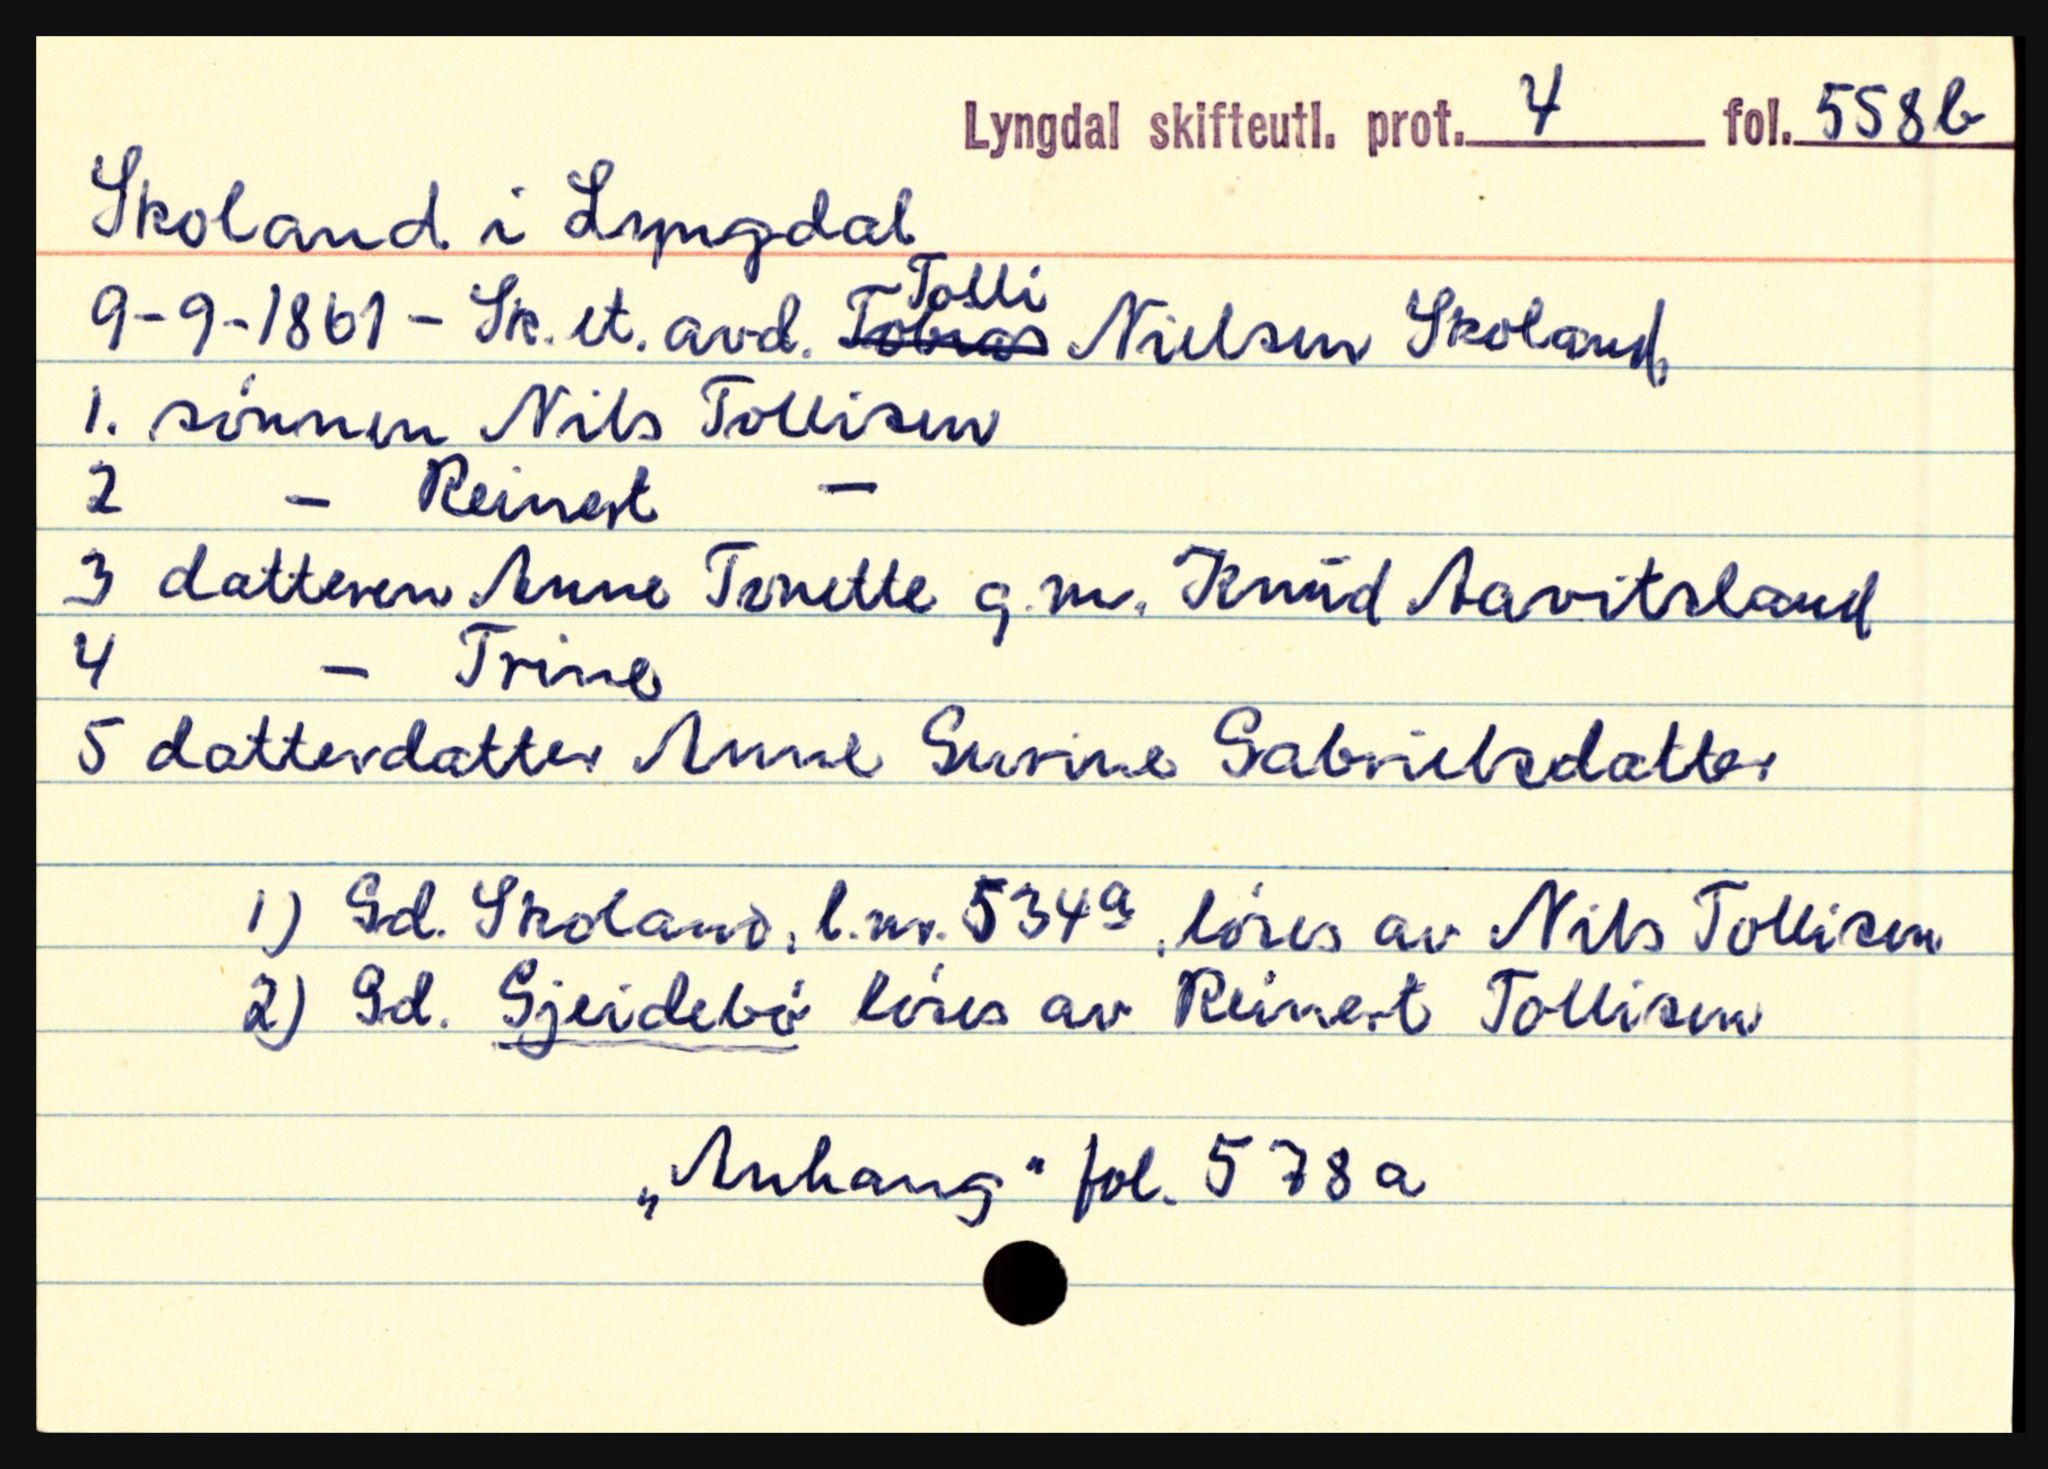 Lyngdal skifteutl. prot. 4 fol. 558b
Skoland i Lyngdal
9-9-1861 - Sk. et. avd. ~~Tobias~~ Tolli Nielsen Skoland,
1. sönnen Nils Tollisen
2 - Reinert -
3 datteren Anne Tonette g.m. Knud Aavitsland
4 - Trine
5 datterdatter Anne Gurine Gabrielsdatter
1) Gd. Skoland, l.nr. 534a, löses av Nils Tollisen
2) Gd. Gjeidebö löses av Reinert Tollisen
„Anhang" fol. 578a